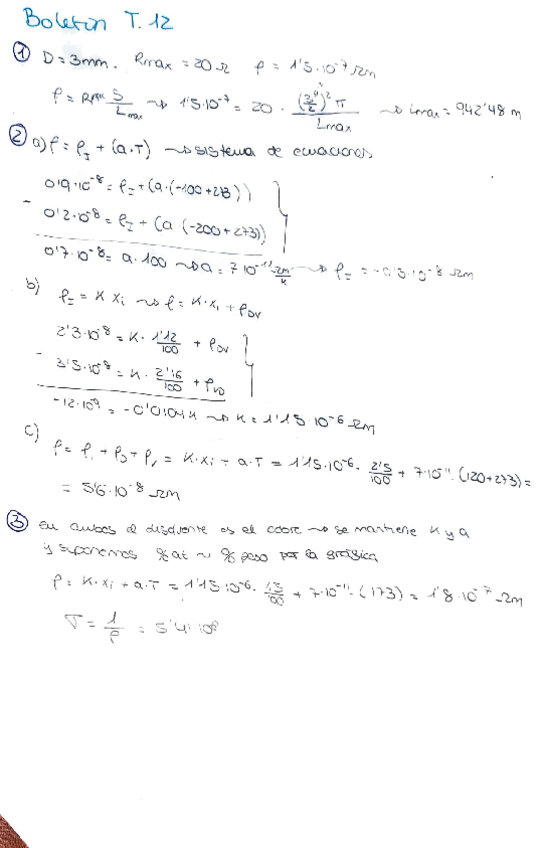 Boletín T.12
① D=3mm. Rmax = 20Ω ρ = 1'5·10⁻⁷ Ωm
ρ = Rmax S/Lmax ⇝ 1'5·10⁻⁷ = 20 · (3/2)² π / Lmax ⇝ Lmax = 942'48 m
② a) ρ = ρI + (a·T) ⇝ sistema de ecuaciones
0'9·10⁻⁸ = ρI + (a·(-100+273))
- 0'2·10⁻⁸ = ρI + (a·(-200+273))
0'7·10⁻⁸ = a·100 ⇝ a = 7·10⁻¹¹ Ωm/K ⇝ ρI = -0'3·10⁻⁸ Ωm
b) ρI = K Xi ⇝ ρ = K·Xi + ρDV
2'3·10⁻⁸ = K · 1'12/100 + ρDV
- 3'5·10⁻⁸ = K · 2'16/100 + ρVD
-12·10⁻⁹ = -0'0104K ⇝ K = 1'15·10⁻⁶ Ωm
c) ρ = ρI + ρD + ρV = K·Xi + a·T = 1'15·10⁻⁶ · 2'5/100 + 7·10⁻¹¹ · (120+273) =
= 5'6·10⁻⁸ Ωm
③ en ambos el disolvente es el cobre ⇝ se mantiene K y a
y suponemos %at ~ %peso por la gráfica
ρ = K·Xi + a·T = 1'15·10⁻⁶ · 15/100 + 7·10⁻¹¹ · (173) = 1'8·10⁻⁷ Ωm
σ = 1/ρ = 5'4·10⁶